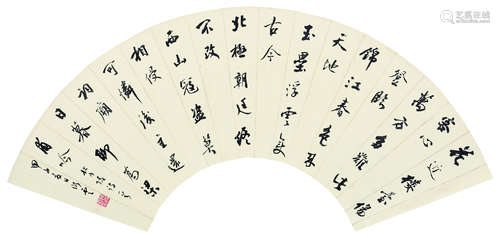 花近樓高傷
客心
萬方多難此
登臨
錦江春色来
天地
玉壘浮雲變
古今
北極朝廷終
不改
西山寇盜莫
相侵
可憐後主還
祠廟
日暮聊為梁
甫吟
艺狐在线